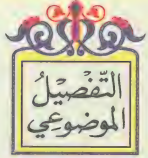 التَّفصِيْلُ
المَوضُوعِي